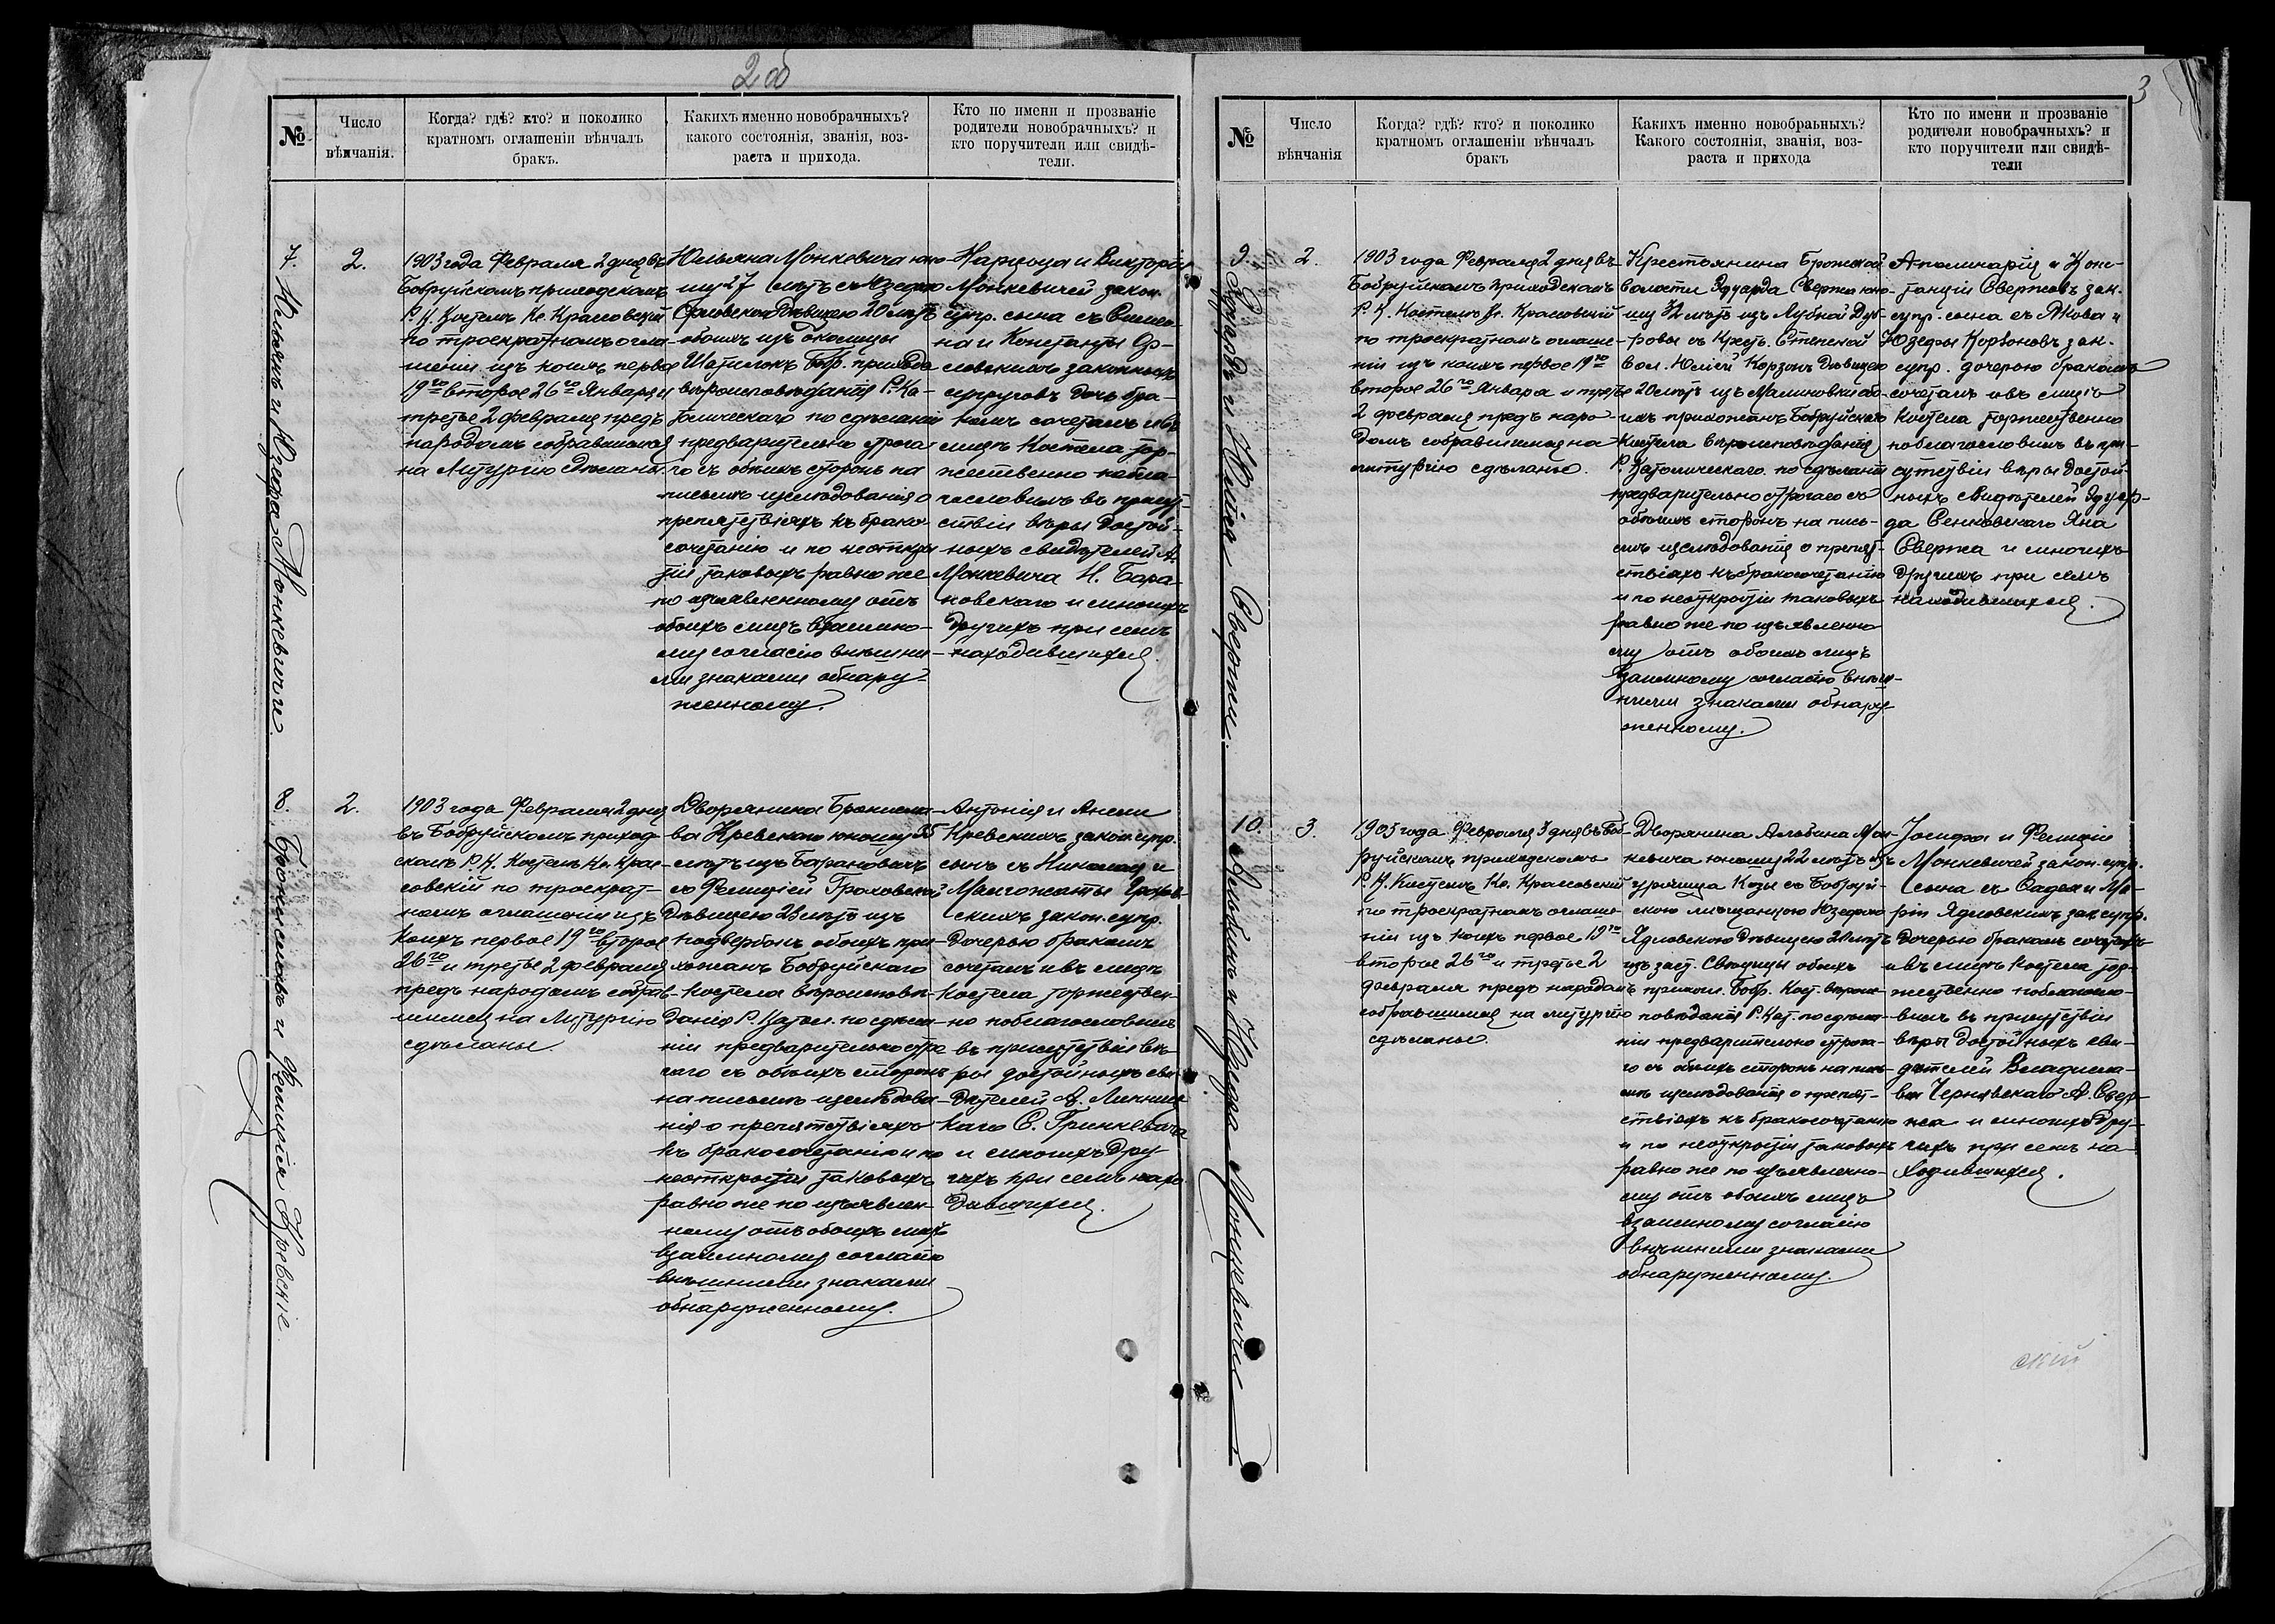 2об
№
Число
вѣнчанія.
Когда? гдѣ? кто? и поколико
кратномъ оглашеніи вѣнчалъ
бракъ.
Какихъ именно новобрачныхъ?
какого состоянія, званія, воз-
раста и прихода.
Кто по имени и прозваніе
родители новобрачныхъ? и
кто поручители или свидѣ-
тели.
7. Юльянъ и Юзефа Монкевичи.
2.
1903 года Февраля 2 дня въ
Бобруйскомъ приходскомъ
Р. К. Костелѣ Кс. Крассовскій
по троекратномъ огла-
шеніи изъ коихъ первое
19го второе 26го Января и
третье 2 февраля предъ
народомъ собравшимся
на Литургію сдѣланы.
Юльяна Монкевича юно-
шу 27 лѣтъ съ Юзефою
Орловскою Дѣвицею 20 лѣтъ
обоихъ изъ Околицы
Шатилокъ Бобр. прихода
вѣроисповѣданія Р. Ка-
толическаго по сдѣланіи
предварительно строга-
го съ обѣихъ сторонъ на
письмѣ изслѣдованія о
препятствіяхъ къ брако-
сочетанію и по неоткры-
тіи таковыхъ равно же
по изъявленному отъ
обоихъ лицъ взаимно-
му согласію внѣшни-
ми знаками обнару-
женному.
Нарциза и Викторіи
Монкевичей закон.
супр. сына съ Симео-
на и Констанціи Ор-
ловскихъ законныхъ
супруговъ дочь бра-
комъ сочеталъ и въ
лицѣ Костела тор-
жественно побла-
гословилъ въ присут-
ствіи вѣры достой-
ныхъ свидѣтелей А.
Монкевича И. Бара-
новскаго и многихъ
другихъ при семъ
находившихся.
8. Брониславъ и Фелиція Кревскіе.
2.
1903 года Февраля 2 дня
въ Бобруйскомъ приход-
скомъ Р. К. Костелѣ Кс. Крас-
совскій по троекрат-
номъ оглашеніи изъ
коихъ первое 19го второе
26го и третье 2 февраля
предъ народомъ собрав-
шимся на Литургію
сдѣланы.
Дворянина Бронисла-
ва Кревскаго юношу 35
лѣтъ изъ Барановичъ
съ Фелиціей Гроховской
Дѣвицею 23 лѣтъ изъ
Подвербокъ обоихъ при-
хожанъ Бобруйскаго
Костела вѣроисповѣ-
данія Р. Катол. по сдѣла-
ніи предварительно стро-
гаго съ обѣихъ сторонъ
на письмѣ изслѣдова-
нія о препятствіяхъ
къ бракосочетанію и по
неоткрытіи таковыхъ
равно же по изъявлен-
ному отъ обоихъ лицъ
взаимному согласію
внѣшними знаками
обнаруженному.
Антонія и Анели
Кревскихъ закон. супр.
сынъ съ Николая и
Малгожаты Грохов-
скихъ закон. супр.
дочерью бракомъ
сочеталъ и въ лицѣ
Костела торжествен-
но поблагословилъ
въ присутствіи вѣ-
ры достойныхъ сви-
дѣтелей А.
С. Гринкевича
и многихъ дру-
гихъ при семъ нахо-
дившихся.
3
№
Число
вѣнчанія
Когда? гдѣ? кто? и поколико
кратномъ оглашеніи вѣнчалъ
бракъ
Какихъ именно новобраьныхъ?
Какого состоянія, званія, воз-
раста и прихода
Кто по имени и прозваніе
родители новобрачныхъ? и
кто поручители или свидѣ-
тели
9. Эдуардъ и Юлія Свержи.
2.
1903 года Февраля 2 дня въ
Бобруйскомъ приходскомъ
Р. К. Костелѣ Кс. Крассовскій
по троекратномъ оглаше-
ніи изъ коихъ первое 19го
второе 26го Января и третье
2 февраля предъ наро-
домъ собравшимся на
литургію сдѣланы.
Крестьянина Брожской
волости Эдуарда Свержа юно-
шу 32 лѣтъ изъ Лубной Дуб-
ровы съ Крест. Степской
вол. Юліей Корзонъ Дѣвицею
20 лѣтъ изъ Малиновки обо-
ихъ прихожанъ Бобруйскаго
Костела вѣроисповѣданія
Р. Католическаго по сдѣланіи
предварительно строгаго съ
обѣихъ сторонъ на пись-
мѣ изслѣдованія о препят-
ствіяхъ къ бракосочетанію
и по неоткрытіи таковыхъ
равно же по изъявленно-
му отъ обоихъ лицъ
взаимному согласію внѣш-
ними знаками обнару-
женному.
Аполинарія и Конс-
танціи Свержовъ зак.
супр. сына съ Якова и
Юзефы Корзоновъ зак.
супр. дочерью бракомъ
сочеталъ и въ лицѣ
Костела торжественно
поблагословилъ въ при-
сутствіи вѣры достой-
ныхъ свидѣтелей Эдуар-
да Сенковскаго Яна
Свержа и многихъ
другихъ при семъ
находившихся.
10. Альбинъ и Юзефа Монкевичи
3.
1903 года Февраля 3 дня въ Боб-
руйскомъ приходскомъ
Р. К. Костелѣ Кс. Крассовскій
по троекратномъ оглаше-
ніи изъ коихъ первое 19го
второе 26го и третье 2
февраля предъ народомъ
собравшимся на литургію
сдѣланы.
Дворянина Альбина Мон-
кевича юношу 22 лѣтъ изъ
урочища Козы съ Бобруй-
скою мѣщанкою Юзефою
Ядловскою Дѣвицею 21 лѣтъ
изъ заст. обоихъ
прихож. Бобр. Кост. вѣроис-
повѣданія Р. Кат. по сдѣла-
ніи предварительно строга-
го съ обѣихъ сторонъ на пись-
мѣ изслѣдованія о препят-
ствіяхъ къ бракосочетанію
и по неоткрытіи таковыхъ
равно же по изъявленно-
му отъ обоихъ лицъ
взаимному согласію
внѣшними знаками
обнаруженному.
Іосифа и Фелиціи
Монкевичей закон. супр.
сына съ Фадея и Ма-
ріи Ядловскихъ зак. супр.
дочерью бракомъ сочеталъ
и въ лицѣ Костела тор-
жественно поблагосло-
вилъ въ присутствіи
вѣры достойныхъ сви-
дѣтелей Владисла-
ва Чернявскаго А. Свер-
жа и многихъ дру-
гихъ при семъ на-
ходившихся.
скій